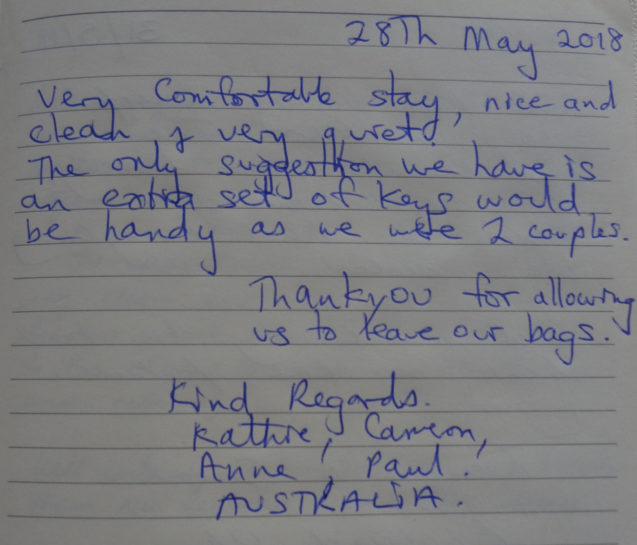 28Th May 2018
Very Comfortable stay, nice and
clean & very quiet!
The only suggestion we have is
an extra set of keys would
be handy as we were 2 couples.
Thankyou for allowing
us to leave our bags.
Kind Regards.
Kathie, Cameon,
Anne, Paul.
AUSTRALIA.